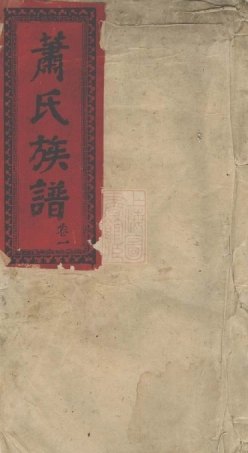 蕭氏族譜
卷一